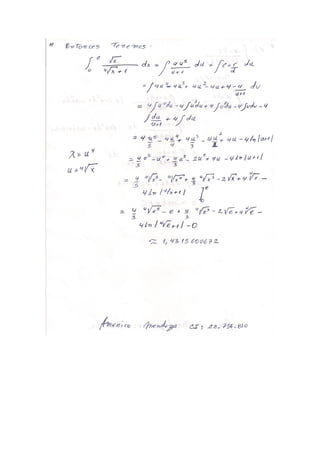 Entonces Tenemos:
∫₀ᵉ √x / (⁴√x + 1) dx = ∫ 4u⁵ / (u+1) du = ∫ c + r/d du
= ∫ 4u⁴ - 4u³ + 4u² - 4u + 4 - 4/(u+1) du
= 4∫u⁴du - 4∫u³du + 4∫u²du - 4∫udu - 4
∫ du/(u+1) + 4∫du
= 4 u⁵/5 - 4u⁴/4 + 4u³/3 - 4u²/2 + 4u - 4 ln|u+1|
x = u⁴
u = ⁴√x
= 4/5 u⁵ - u⁴ + 4/3 u³ - 2u² + 4u - 4 ln|u+1|
= 4/5 ⁴√x⁵ - ⁴√x⁴ + 4/3 ⁴√x³ - 2√x + 4 ⁴√x -
4 Ln |⁴√x + 1| ]₀ᵉ
= 4/5 ⁴√e⁵ - e + 4/3 ⁴√e³ - 2√e + 4 ⁴√e -
4 Ln |⁴√e + 1| - 0
≃ 1,4315600672
Américo Mendoza CI: